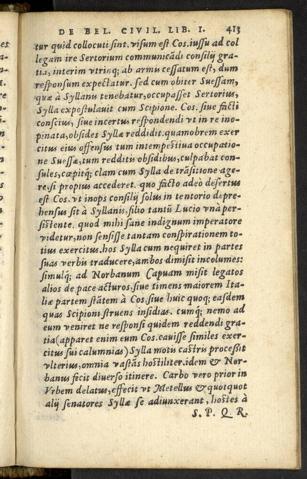 DE BEL. CIVIL. LIB. I. 413
tur quid collocuti sint. visum est Cos. iussu ad col
legam ire Sertorium communicādi consilij gra-
tia, interim vtrinq; ab armis cessatum est, dum
responsum expectatur. sed cum obiter Suessam,
quæ à Syllanis tenebatur, occupasset Sertorius,
Sylla expostulauit cum Scipione. Cos. siue facti
conscius, siue incertus respondendi vt in re ino-
pinata, obsides Syllæ reddidit. quamobrem exer
citus eius offensus tum intempestiua occupatio-
ne Suessæ, tum redditis obsidibus, culpabat con-
sules, cœpitq; clam cum Sylla de trāsitione age-
re, si propius accederet. quo facto adeo desertus
est Cos. vt inops consilij solus in tentorio depre-
hensus sit à Syllanis, filio tantū Lucio vnà per-
sistente. quod mihi sanè indignum imperatore
videtur, non sensisse tantam conspirationem to-
tius exercitus. hos Sylla cum nequiret in partes
suas verbis traducere, ambos dimisit incolumes:
simulq; ad Norbanum Capuam misit legatos
alios de pace acturos. siue timens maiorem Ita-
liæ partem stātem à Cos. siue huic quoq; easdem
quas Scipioni struens insidias. cumq; nemo ad
eum veniret ne responsi quidem reddendi gra-
tia (apparet enim eum Cos. cauisse similes exer-
citus sui calumnias) Sylla motis castris processit
vlterius, omnia vastās hostiliter. idem & Nor-
banus fecit diuerso itinere. Carbo vero prior in
Vrbem delatus, effecit vt Metellus & quotquot
alij senatores Syllæ se adiunxerant, hostes à
S. P. Q. R.